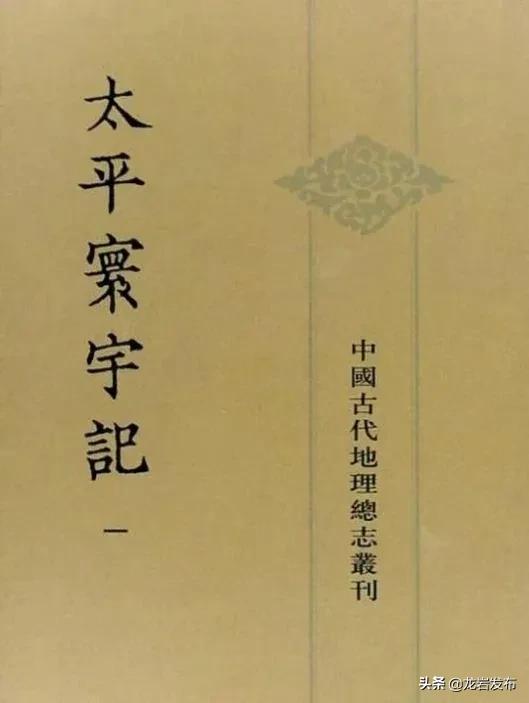 太平寰宇記
一
中國古代地理總志叢刊
头条 @龙岩发布